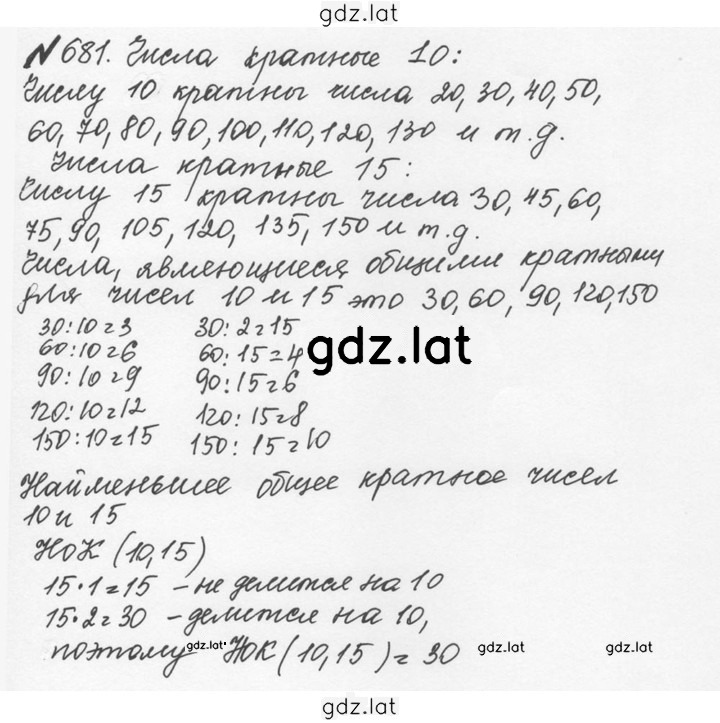 gdz.lat
№681. Числа кратные 10:
Числу 10 кратны числа 20, 30, 40, 50,
60, 70, 80, 90, 100, 110, 120, 130 и т.д.
Числа кратные 15:
Числу 15 кратны числа 30, 45, 60,
75, 90, 105, 120, 135, 150 и т.д.
Числа, являющиеся общими кратными
для чисел 10 и 15 это 30, 60, 90, 120, 150
30:10=3 30:2=15
60:10=6 60:15=4
gdz.lat
90:10=9 90:15=6
120:10=12 120:15=8
150:10=15 150:15=10
Найменьшее общее кратное чисел
10 и 15
НОК (10,15)
15·1=15 – не делится на 10
15·2=30 – делится на 10,
поэтому gdz.lat НОК (10,15) = 30 gdz.lat gdz.lat
gdz.lat